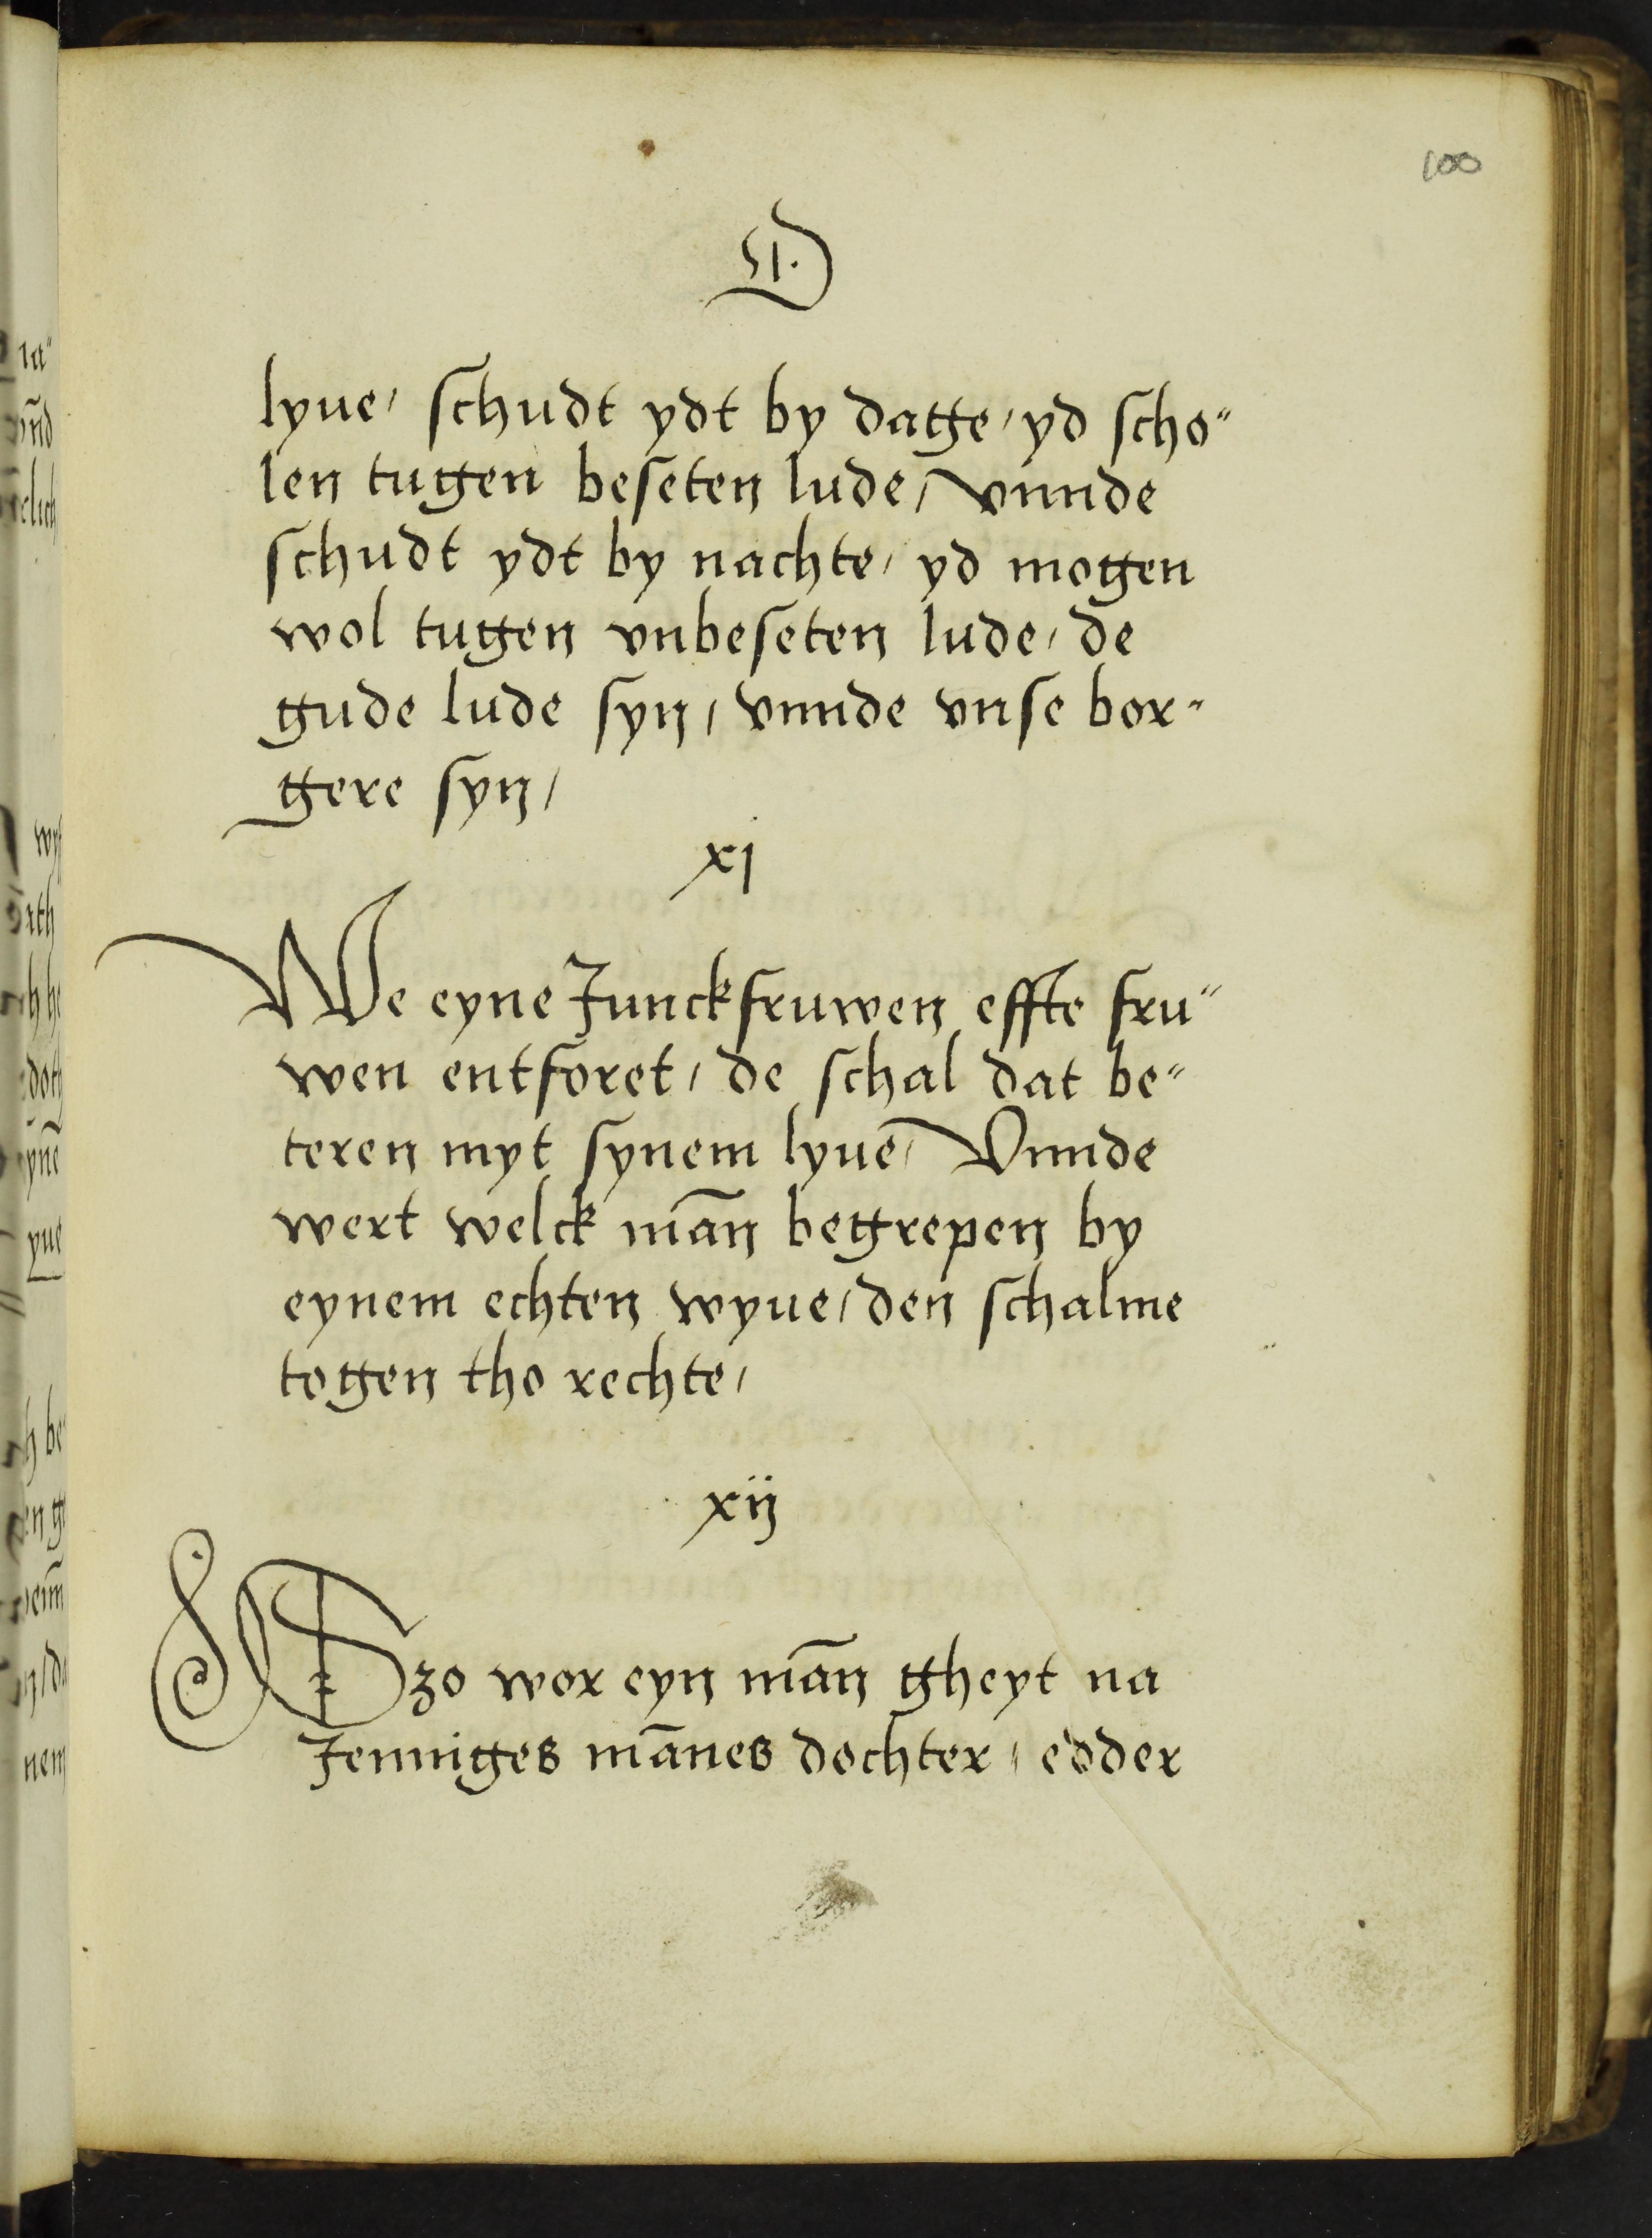 100
D
lyue/ schudt ydt by dage/ yd scho"
len tugen beseten lude/ vnnde
schudt ydt by nachte/ yd mogen
wol tugen vnbeseten lude/ de
gude lude syn/ vnnde vnse bor"
gere syn/
xj
We eyne Junckfruwen effte fru"
wen entforet/ de schal dat be"
teren myt synem lyue/ Vnnde
wert welck mān begrepen by
eynem echten wyue/ den schalme
togen tho rechte/
xij
Szo wor eyn mān gheyt na
Jenniges mānes dochter/ edder